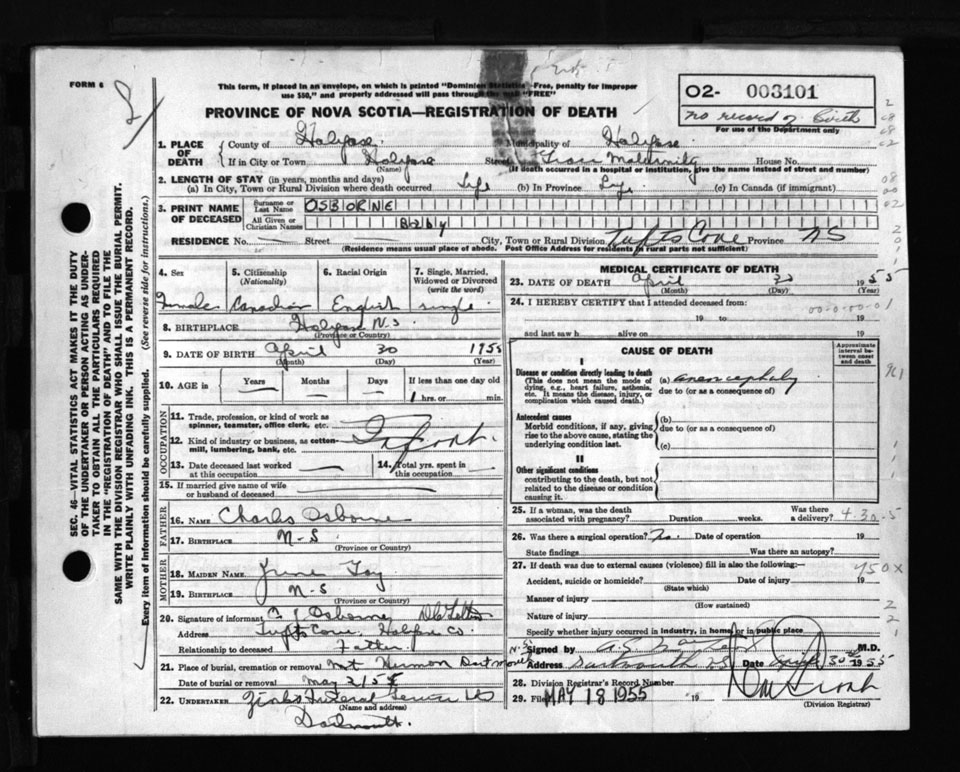 FORM 6
This form, if placed in an envelope, on which is printed "Dominion Statistics—Free, penalty for improper
use $50," and properly addressed will pass through the mail "FREE"
PROVINCE OF NOVA SCOTIA—REGISTRATION OF DEATH
02- 003101
no record of Birth
For use of the Department only
1. PLACE OF DEATH
County of Halifax Municipality of Halifax
If in City or Town Halifax Street Grace Maternity House No.
(Name) (If death occurred in a hospital or institution, give the name instead of street and number)
2. LENGTH OF STAY (in years, months and days)
(a) In City, Town or Rural Division where death occurred Life (b) In Province Life (c) In Canada (if immigrant)
3. PRINT NAME OF DECEASED
Surname or Last Name OSBORNE
All Given or Christian Names Baby
RESIDENCE No. — Street — City, Town or Rural Division Tufts Cove Province NS
(Residence means usual place of abode. Post Office Address for residents in rural parts not sufficient)
4. Sex 5. Citizenship (Nationality) 6. Racial Origin 7. Single, Married, Widowed or Divorced (write the word)
Female Canadian English single
8. BIRTHPLACE Halifax N.S
(Province or Country)
9. DATE OF BIRTH April 30 1955
(Month) (Day) (Year)
10. AGE in Years Months Days If less than one day old
1 hrs. or min.
OCCUPATION
11. Trade, profession, or kind of work as
spinner, teamster, office clerk, etc.
12. Kind of industry or business, as cotton-
mill, lumbering, bank, etc. Infant.
13. Date deceased last worked
at this occupation
14. Total yrs. spent in
this occupation
15. If married give name of wife
or husband of deceased
FATHER
16. NAME Charles Osborne
17. BIRTHPLACE N-S
(Province or Country)
MOTHER
18. MAIDEN NAME June
19. BIRTHPLACE N-S
(Province or Country)
20. Signature of informant C J Osborne
Address Tufts Cove, Halifax Co.
Relationship to deceased Father.
21. Place of burial, cremation or removal Mt Hermon Dartmouth
Date of burial or removal May 2/55
22. UNDERTAKER Zinks Funeral Service Ltd
(Name and address)
Dartmouth.
MEDICAL CERTIFICATE OF DEATH
23. DATE OF DEATH April 1955
(Month) (Day)
24. I HEREBY CERTIFY that I attended deceased from:
00-00-001
19 to 19
and last saw h alive on 19
CAUSE OF DEATH
Approximate interval between onset and death
I
Disease or condition directly leading to death
(This does not mean the mode of
dying, e.g., heart failure, asthenia,
etc. It means the disease, injury, or
complication which caused death.)
(a) anencephaly
due to (or as a consequence of)
Antecedent causes
Morbid conditions, if any, giving
rise to the above cause, stating the
underlying condition last.
(b)
due to (or as a consequence of)
(c)
II
Other significant conditions
contributing to the death, but not
related to the disease or condition
causing it.
25. If a woman, was the death
associated with pregnancy? Duration weeks. Was there a delivery? 4.30.5
26. Was there a surgical operation? no. Date of operation 19
State findings Was there an autopsy?
27. If death was due to external causes (violence) fill in also the following:—
750X
Accident, suicide or homicide? Date of injury 19
(State which)
Manner of injury
(How sustained)
Nature of injury
Specify whether injury occurred in industry, in home, or in public place
Signed by M.D.
Address Dartmouth NS Date April 30 1955
28. Division Registrar's Record Number
29. Filed MAY 18 1955
(Division Registrar)
SEC. 46—VITAL STATISTICS ACT MAKES IT THE DUTY
OF THE UNDERTAKER OR PERSON ACTING AS UNDER-
TAKER TO OBTAIN ALL THE PARTICULARS REQUIRED
IN THE "REGISTRATION OF DEATH" AND TO FILE THE
SAME WITH THE DIVISION REGISTRAR WHO SHALL ISSUE THE BURIAL PERMIT.
WRITE PLAINLY WITH UNFADING INK. THIS IS A PERMANENT RECORD.
Every item of information should be carefully supplied. (See reverse side for instructions.)